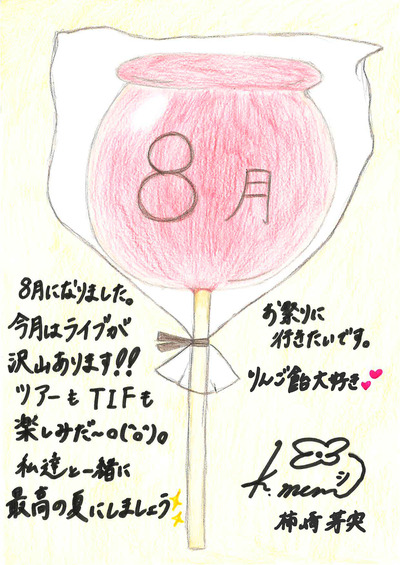 8月
8月になりました。
今月はライブが
沢山あります!!
ツアーもTIFも
楽しみだ〜o(^o^)o
私達と一緒に
最高の夏にしましょう
お祭りに
行きたいです。
りんご飴大好き
柿崎芽実